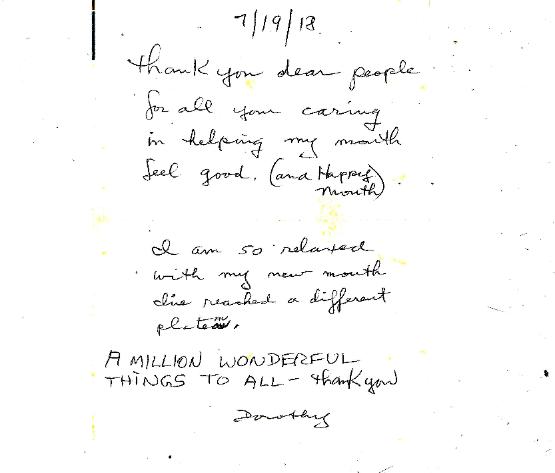 7/19/18
thank you dear people
for all your caring
in helping my mouth
feel good. (and Happy
mouth)
I am so relaxed
with my new mouth
I've reached a different
plateau.
A MILLION WONDERFUL
THINGS TO ALL - thank you
Dorothy